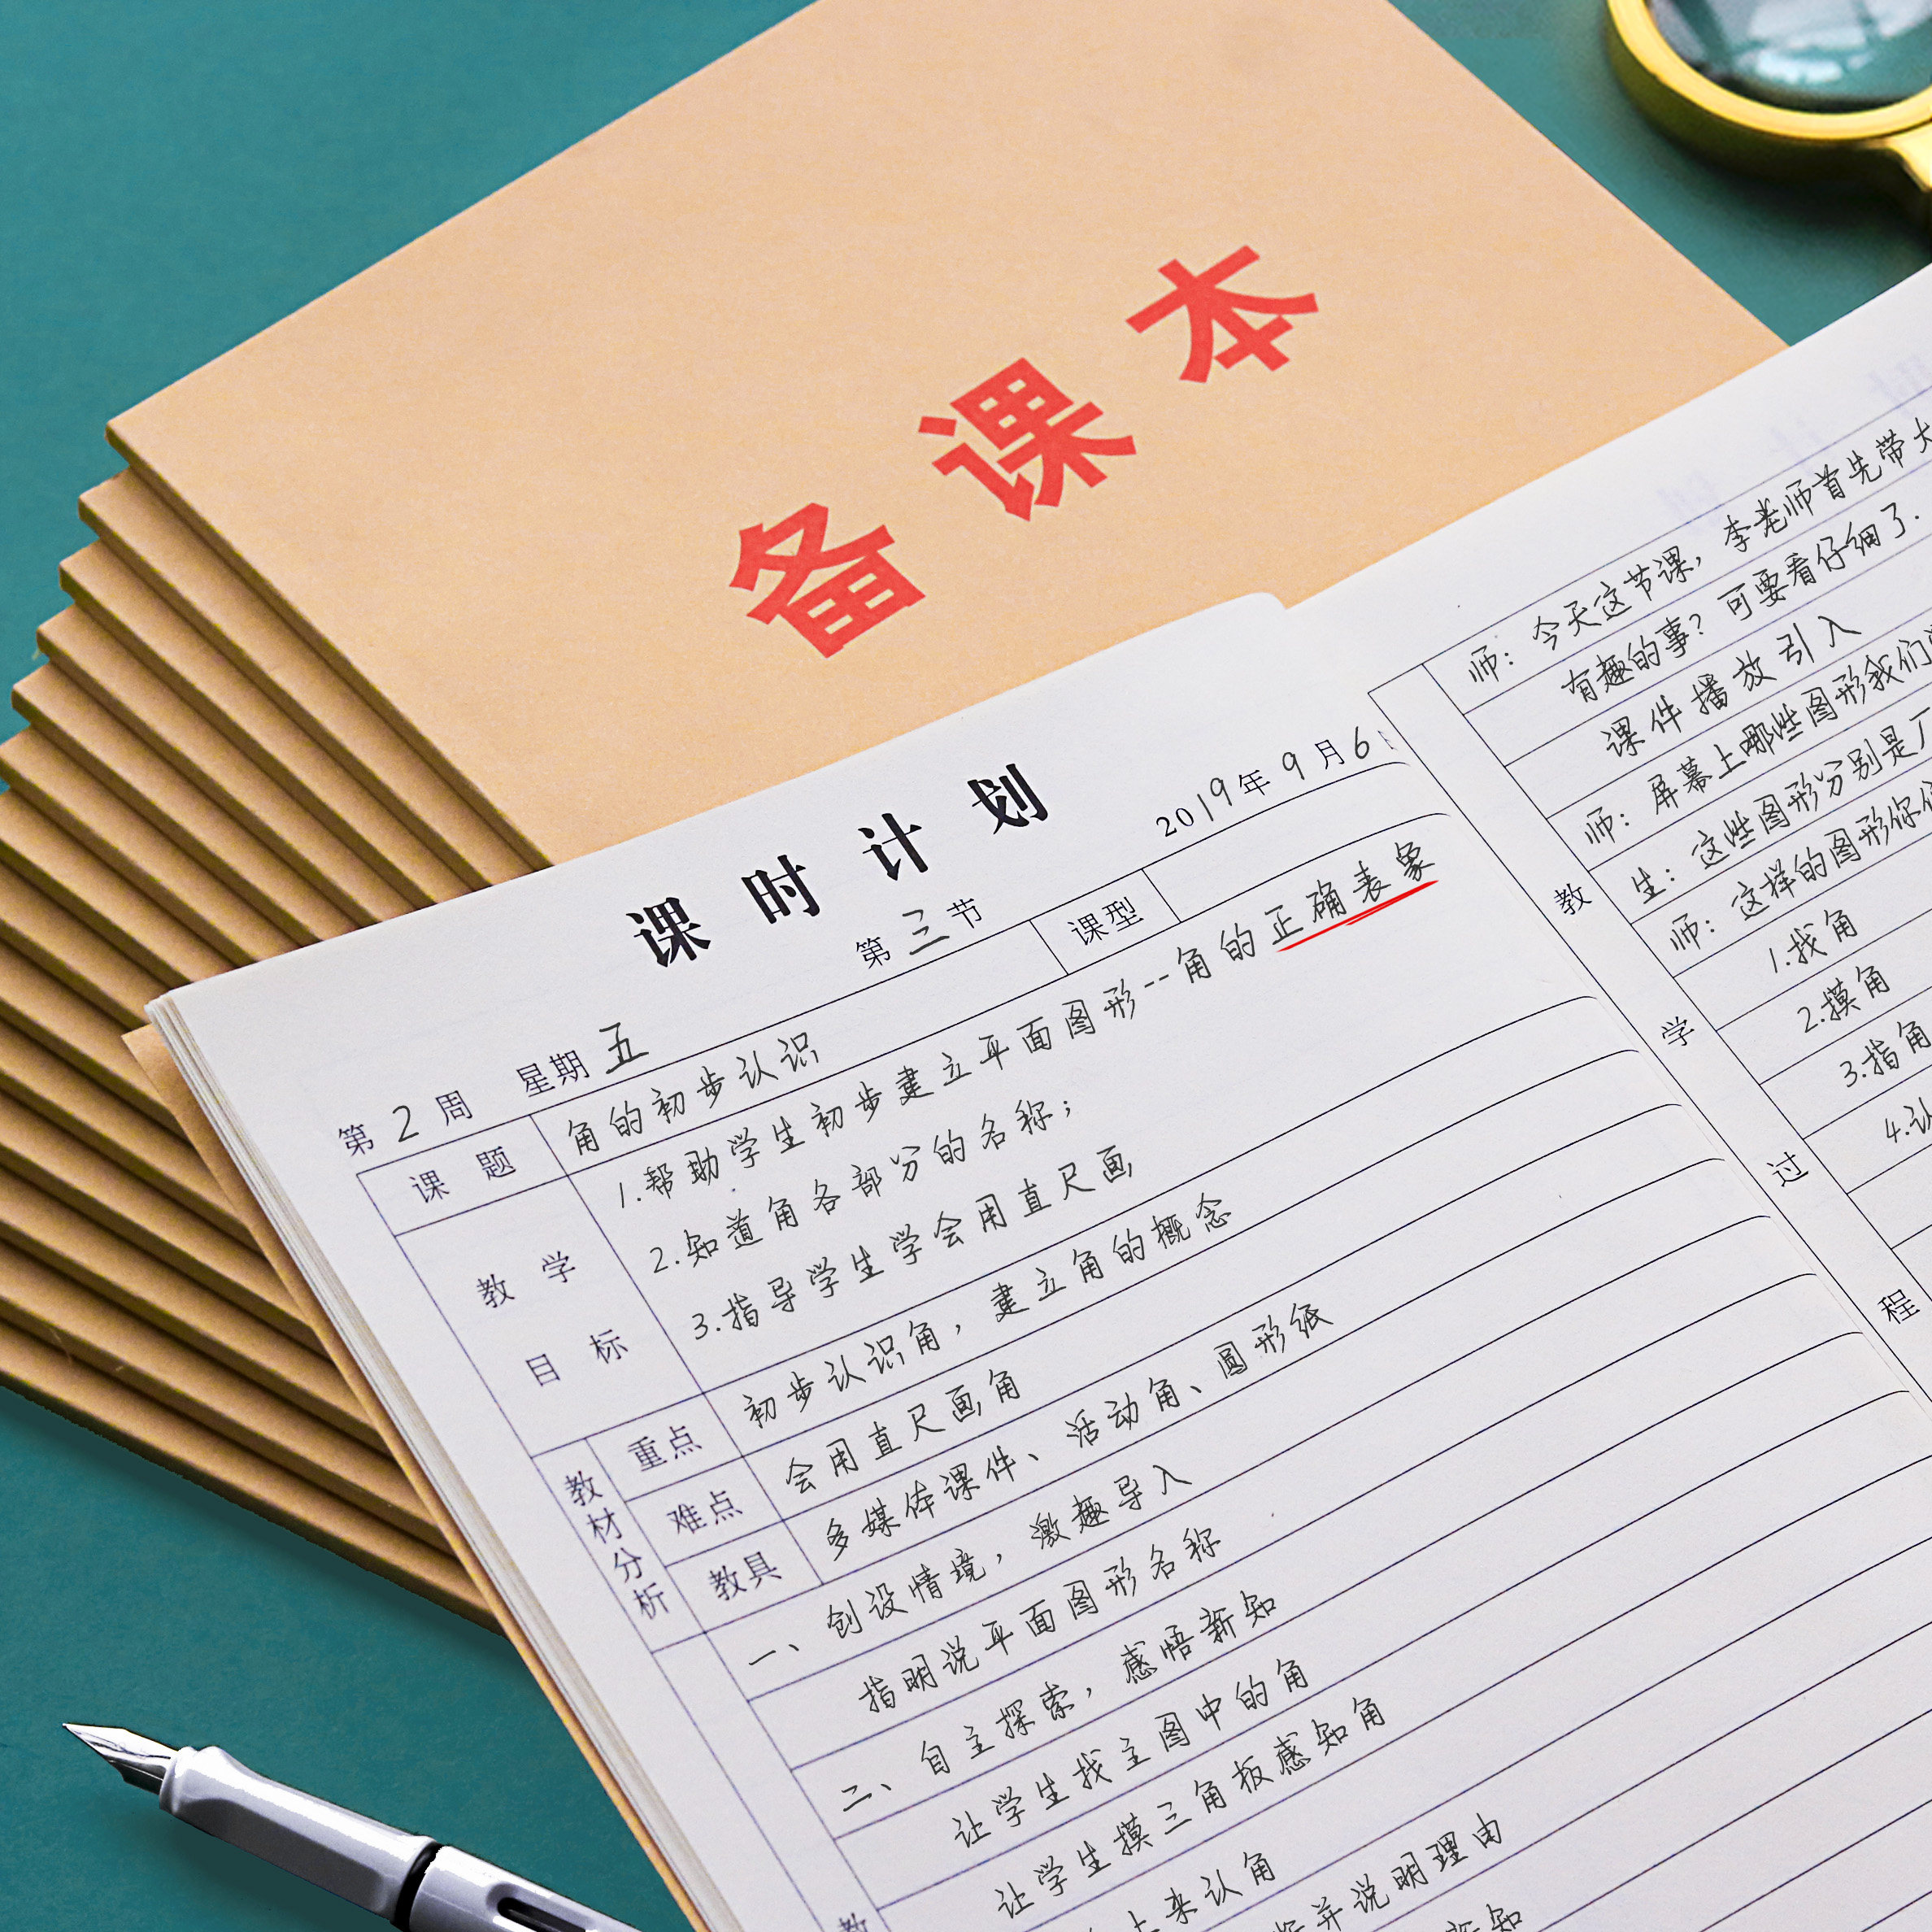 备课本
课时计划
2019年9月6
第2周 星期五 第三节
课题 角的初步认识 课型
教学目标
1.帮助学生初步建立平面图形--角的正确表象
2.知道角各部分的名称；
3.指导学生学会用直尺画
教材分析
重点 初步认识角，建立角的概念
难点 会用直尺画角
教具 多媒体课件、活动角、圆形纸
一、创设情境，激趣导入
指明说平面图形名称
二、自主探索，感悟新知
让学生找主图中的角
让学生摸三角板感知角
来认角
并说明理由
新知
教
教学过程
师：今天这节课，李老师首先带大
有趣的事？可要看仔细了.
课件播放引入
师：屏幕上哪些图形我们
生：这些图形分别是
师：这样的图形你
1.找角
2.摸角
3.指角
4.认